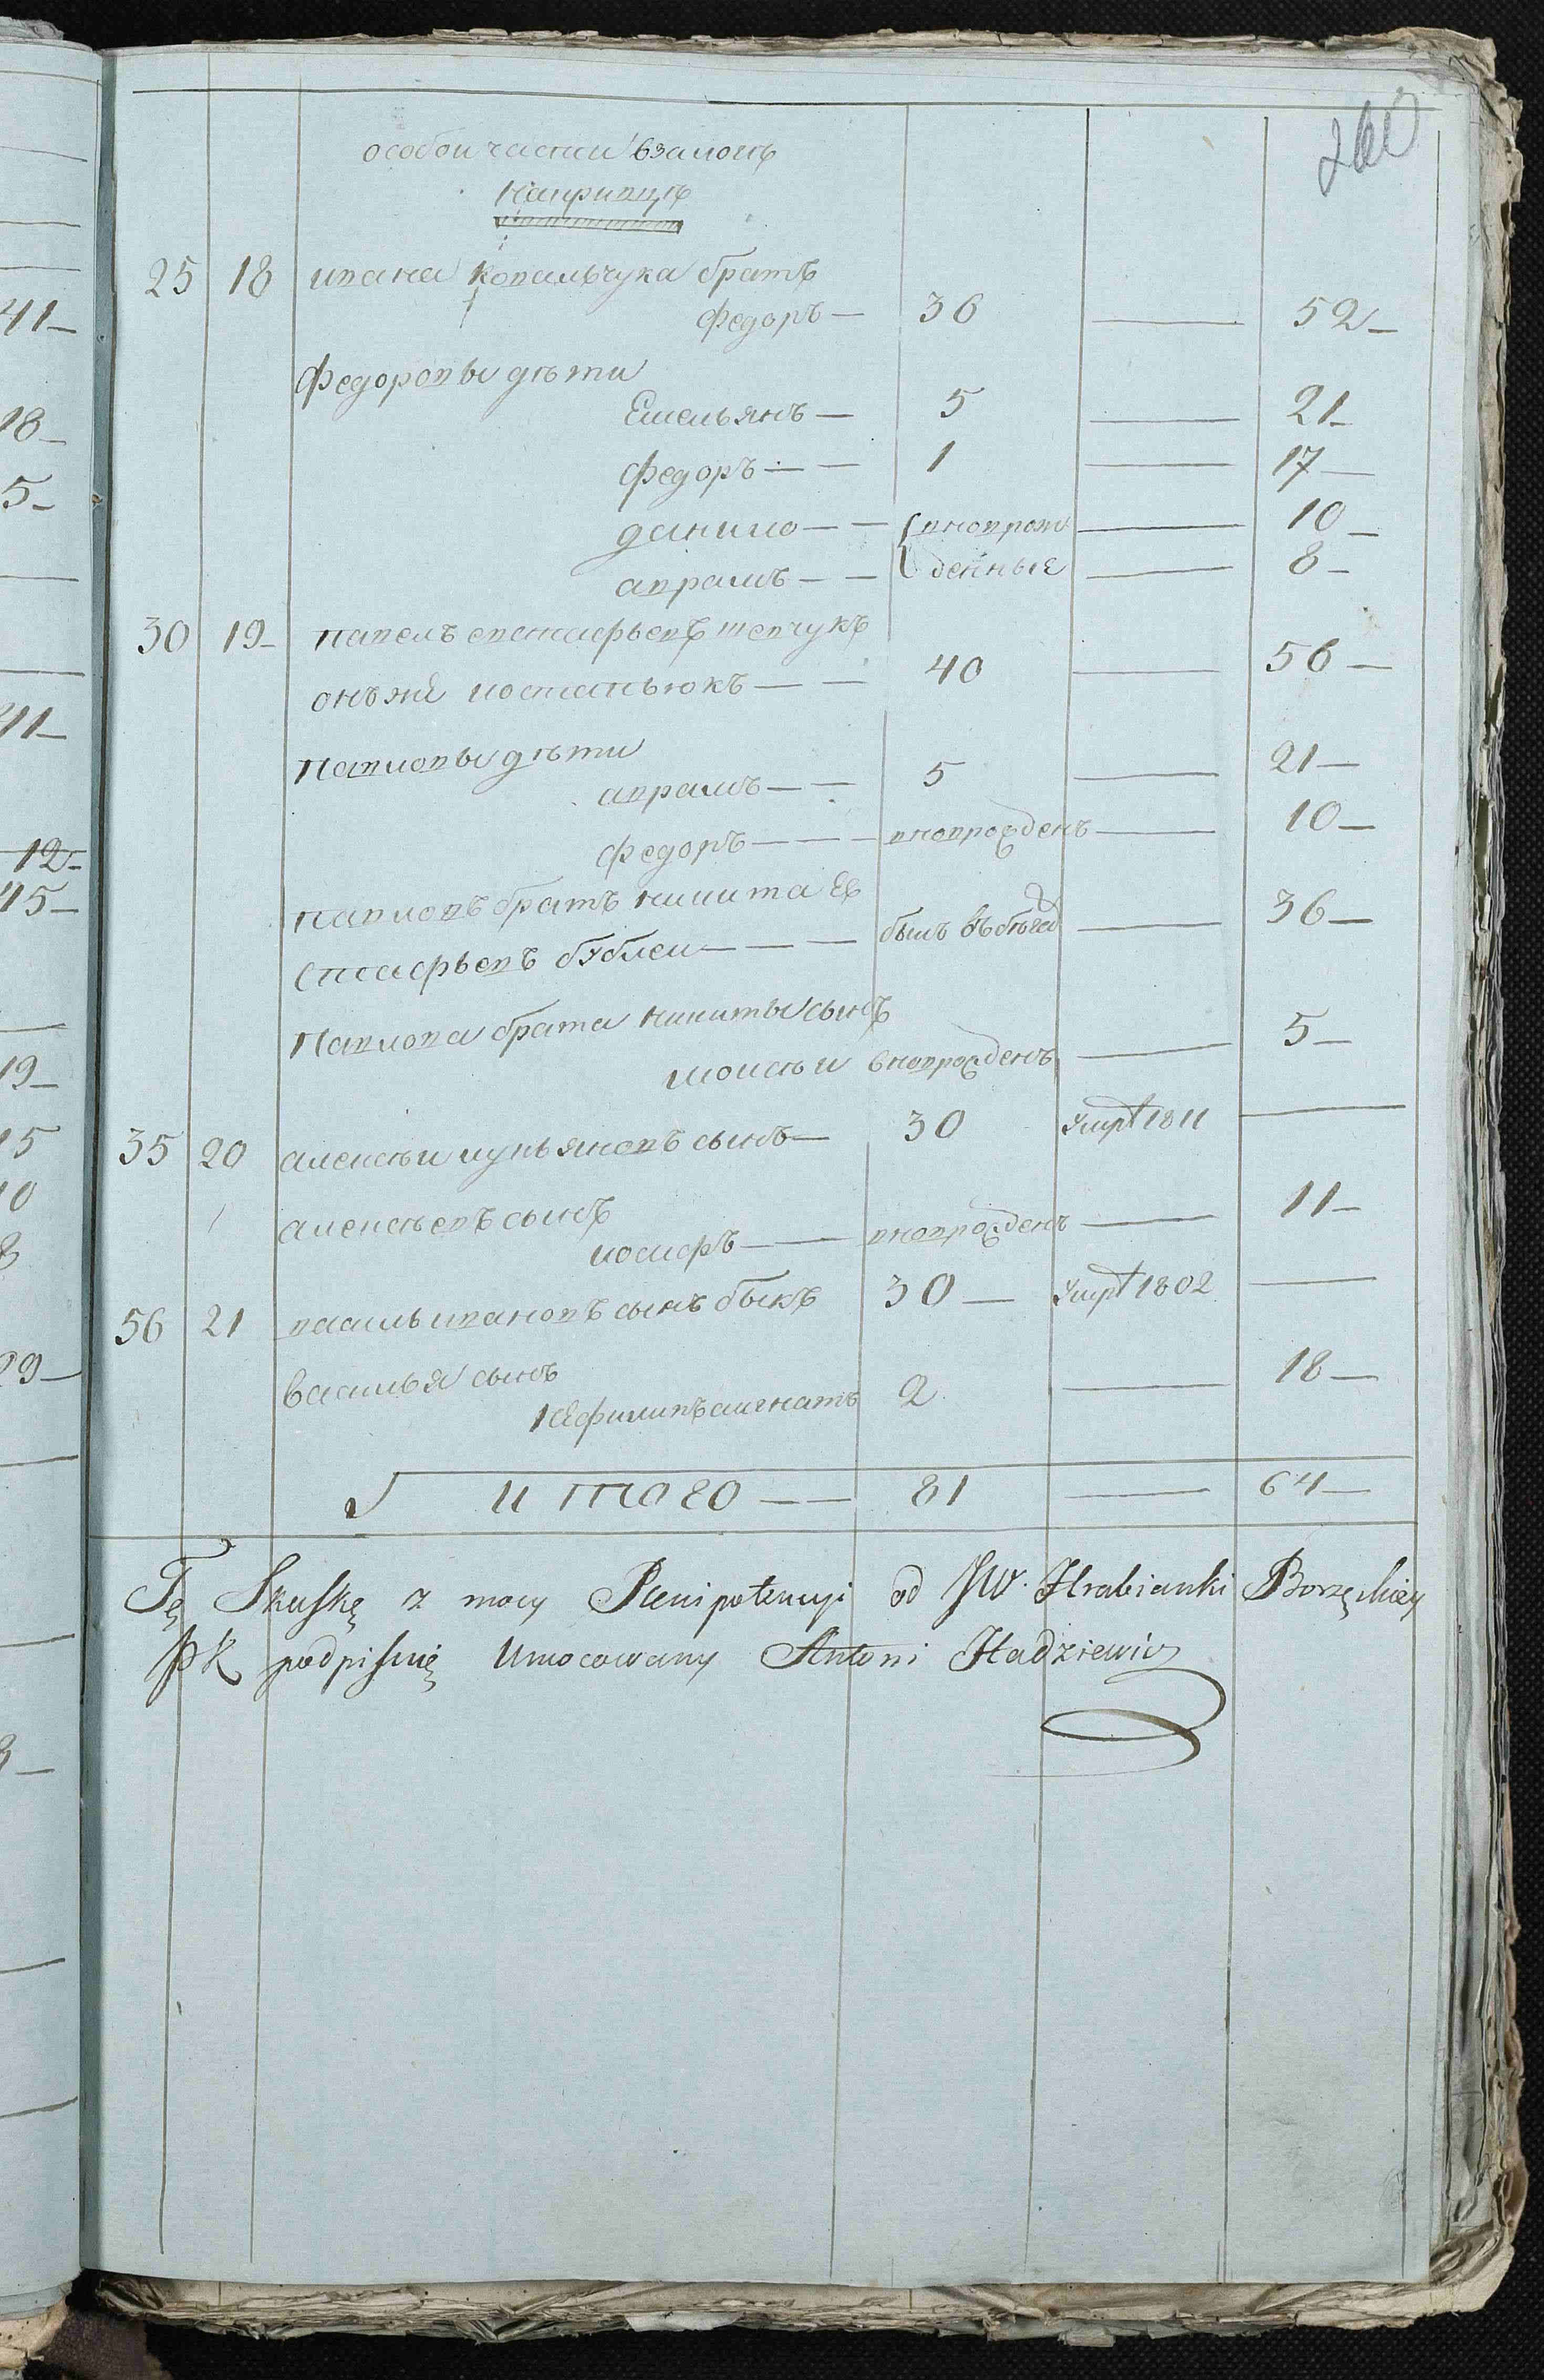 260
особои части взамонъ
Кагривцѣ
25 18 ивана ковальчука братъ
федоръ — 36 — 52 —
федоровы дѣти
Емельянъ — 5 — 21 —
федоръ — — 1 — 17 —
данило — — вноврож — 10 —
аврамъ — — денные — 8 —
30 19 — павелъ евстафьевъ шевчукъ
онъ же костаньюкъ — — 40 — 56 —
павловы дѣти
аврамъ — — 5 — 21 —
федоръ — — — вноврожденъ — 10 —
павловъ братъ никита Ев
стафьевъ бублеи — — — былъ въ бѣгах — 36 —
Павлова брата никиты сынъ
моисѣи вноврожденъ — 5 —
35 20 алексѣи лукьяновъ сынъ — 30 умре 1811 —
алексѣевъ сынъ
иосифъ — — вноврожденъ — 11 —
56 21 василь ивановъ сынъ быкъ 30 — умре 1802 —
василья сынъ
игнатъ 2 — 18 —
итого — — 81 — 64 —
Tę Skaskę z mocy Plenipotencyi od JW. Hrabianki Borzęckiey
podpisuię Umocowany Antoni Hadziewicz
41 —
18 —
5 —
41 —
12 —
45 —
19 —
15
10
8
29 —